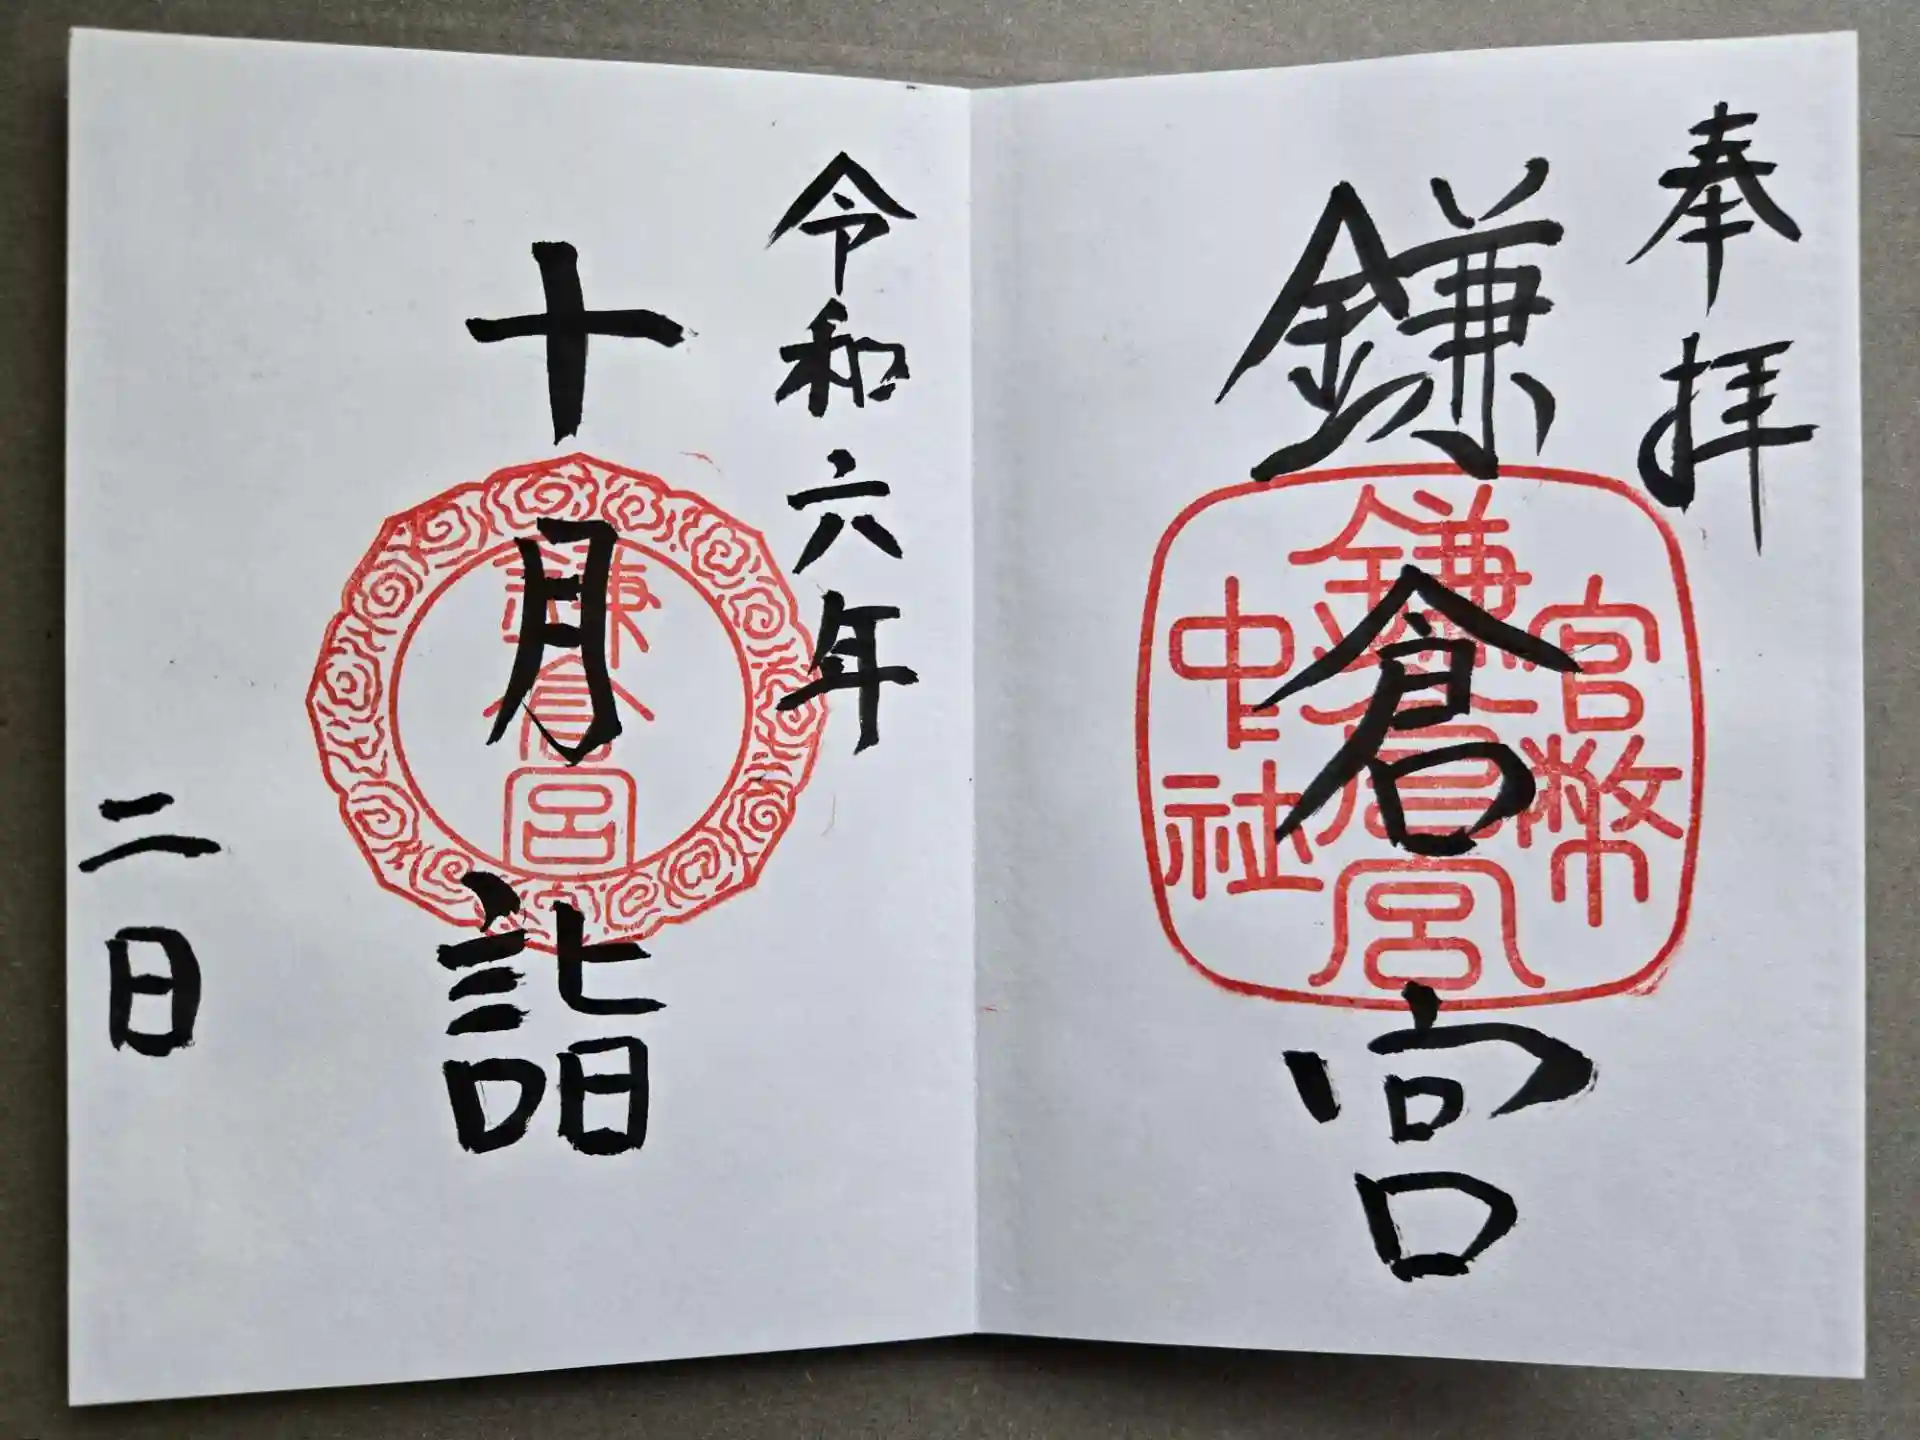 奉拝
鎌倉宮
官幣
鎌倉宮
中社
令和六年
十月詣
鎌倉宮
二日